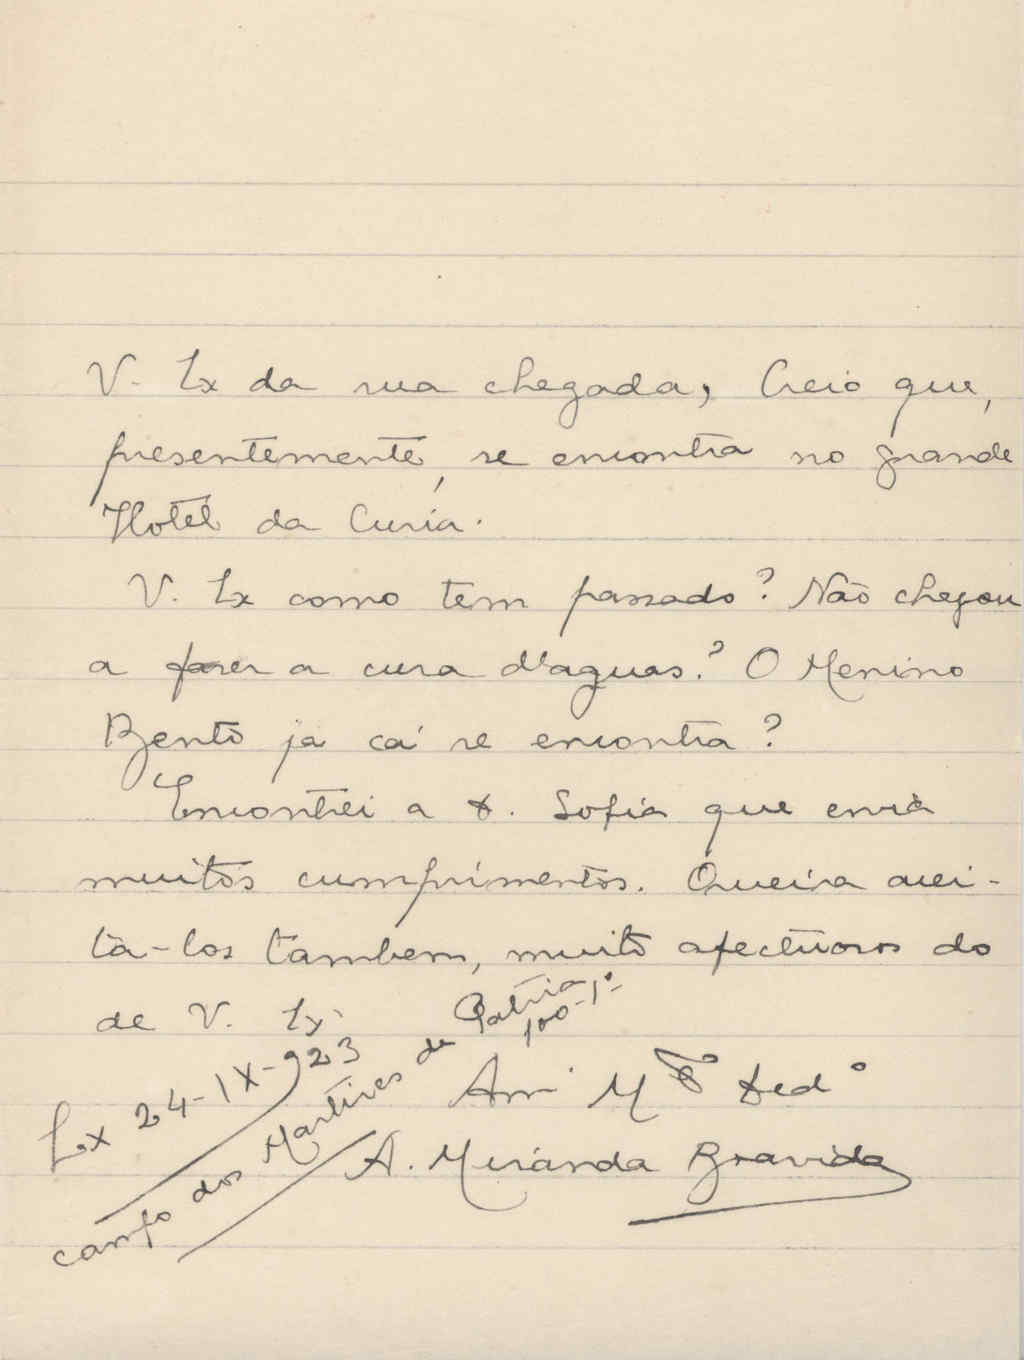 V. Ex da sua chegada, Creio que,
presentemente, se encontra no grande
Hotel da Curia.
V. Ex como tem passado? Não chegou
a fazer a cura d'aguas? O Menino
Bento ja cá se encontra?
Encontrei a D. Sofia que envia
muitos cumprimentos. Queira acei-
ta-los tambem, muito afectuosos do
de V. Ex.
Am. Mto Dedo
A. Miranda Bravida
Lx 24-IX-923
campo dos Martires da Patria
100-1º-